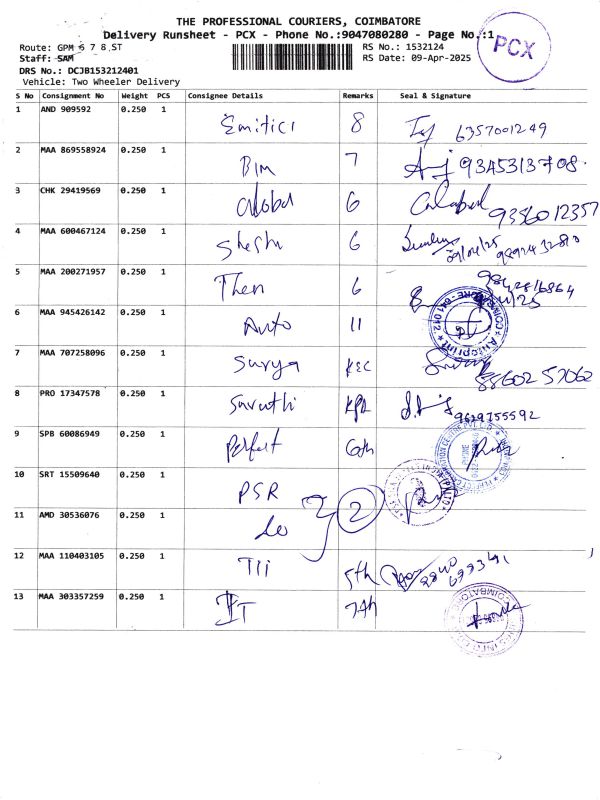 THE PROFESSIONAL COURIERS, COIMBATORE
Delivery Runsheet - PCX - Phone No.:9047080280 - Page No.:1
PCX
Route: GPM 6 7 8 ST
RS No.: 1532124
Staff: SAM
RS Date: 09-Apr-2025
DRS No.: DCJB153212401
Vehicle: Two Wheeler Delivery
S No Consignment No Weight PCS Consignee Details Remarks Seal & Signature
1 AND 909592 0.250 1 Emitici 8 6357001249
2 MAA 869558924 0.250 1 BIM 7 9345313708
3 CHK 29419569 0.250 1 Global 6 9356012357
4 MAA 600467124 0.250 1 Sheshu 6 09/04/25
5 MAA 200271957 0.250 1 Then 6
6 MAA 945426142 0.250 1 Auto 11 Autoprint COIMBATORE-641012
7 MAA 707258096 0.250 1 Surya KGC 88602 57062
8 PRO 17347578 1 0.250 Suruthi 9629755592
9 SPB 60086949 0.250 1 Perfect 6th
10 SRT 15509640 0.250 1 PSR 2
11 AMD 30536076 0.250 1
12 MAA 110403105 0.250 1 TII 5th
13 MAA 303357259 0.250 1 IT 7th COIMBATORE